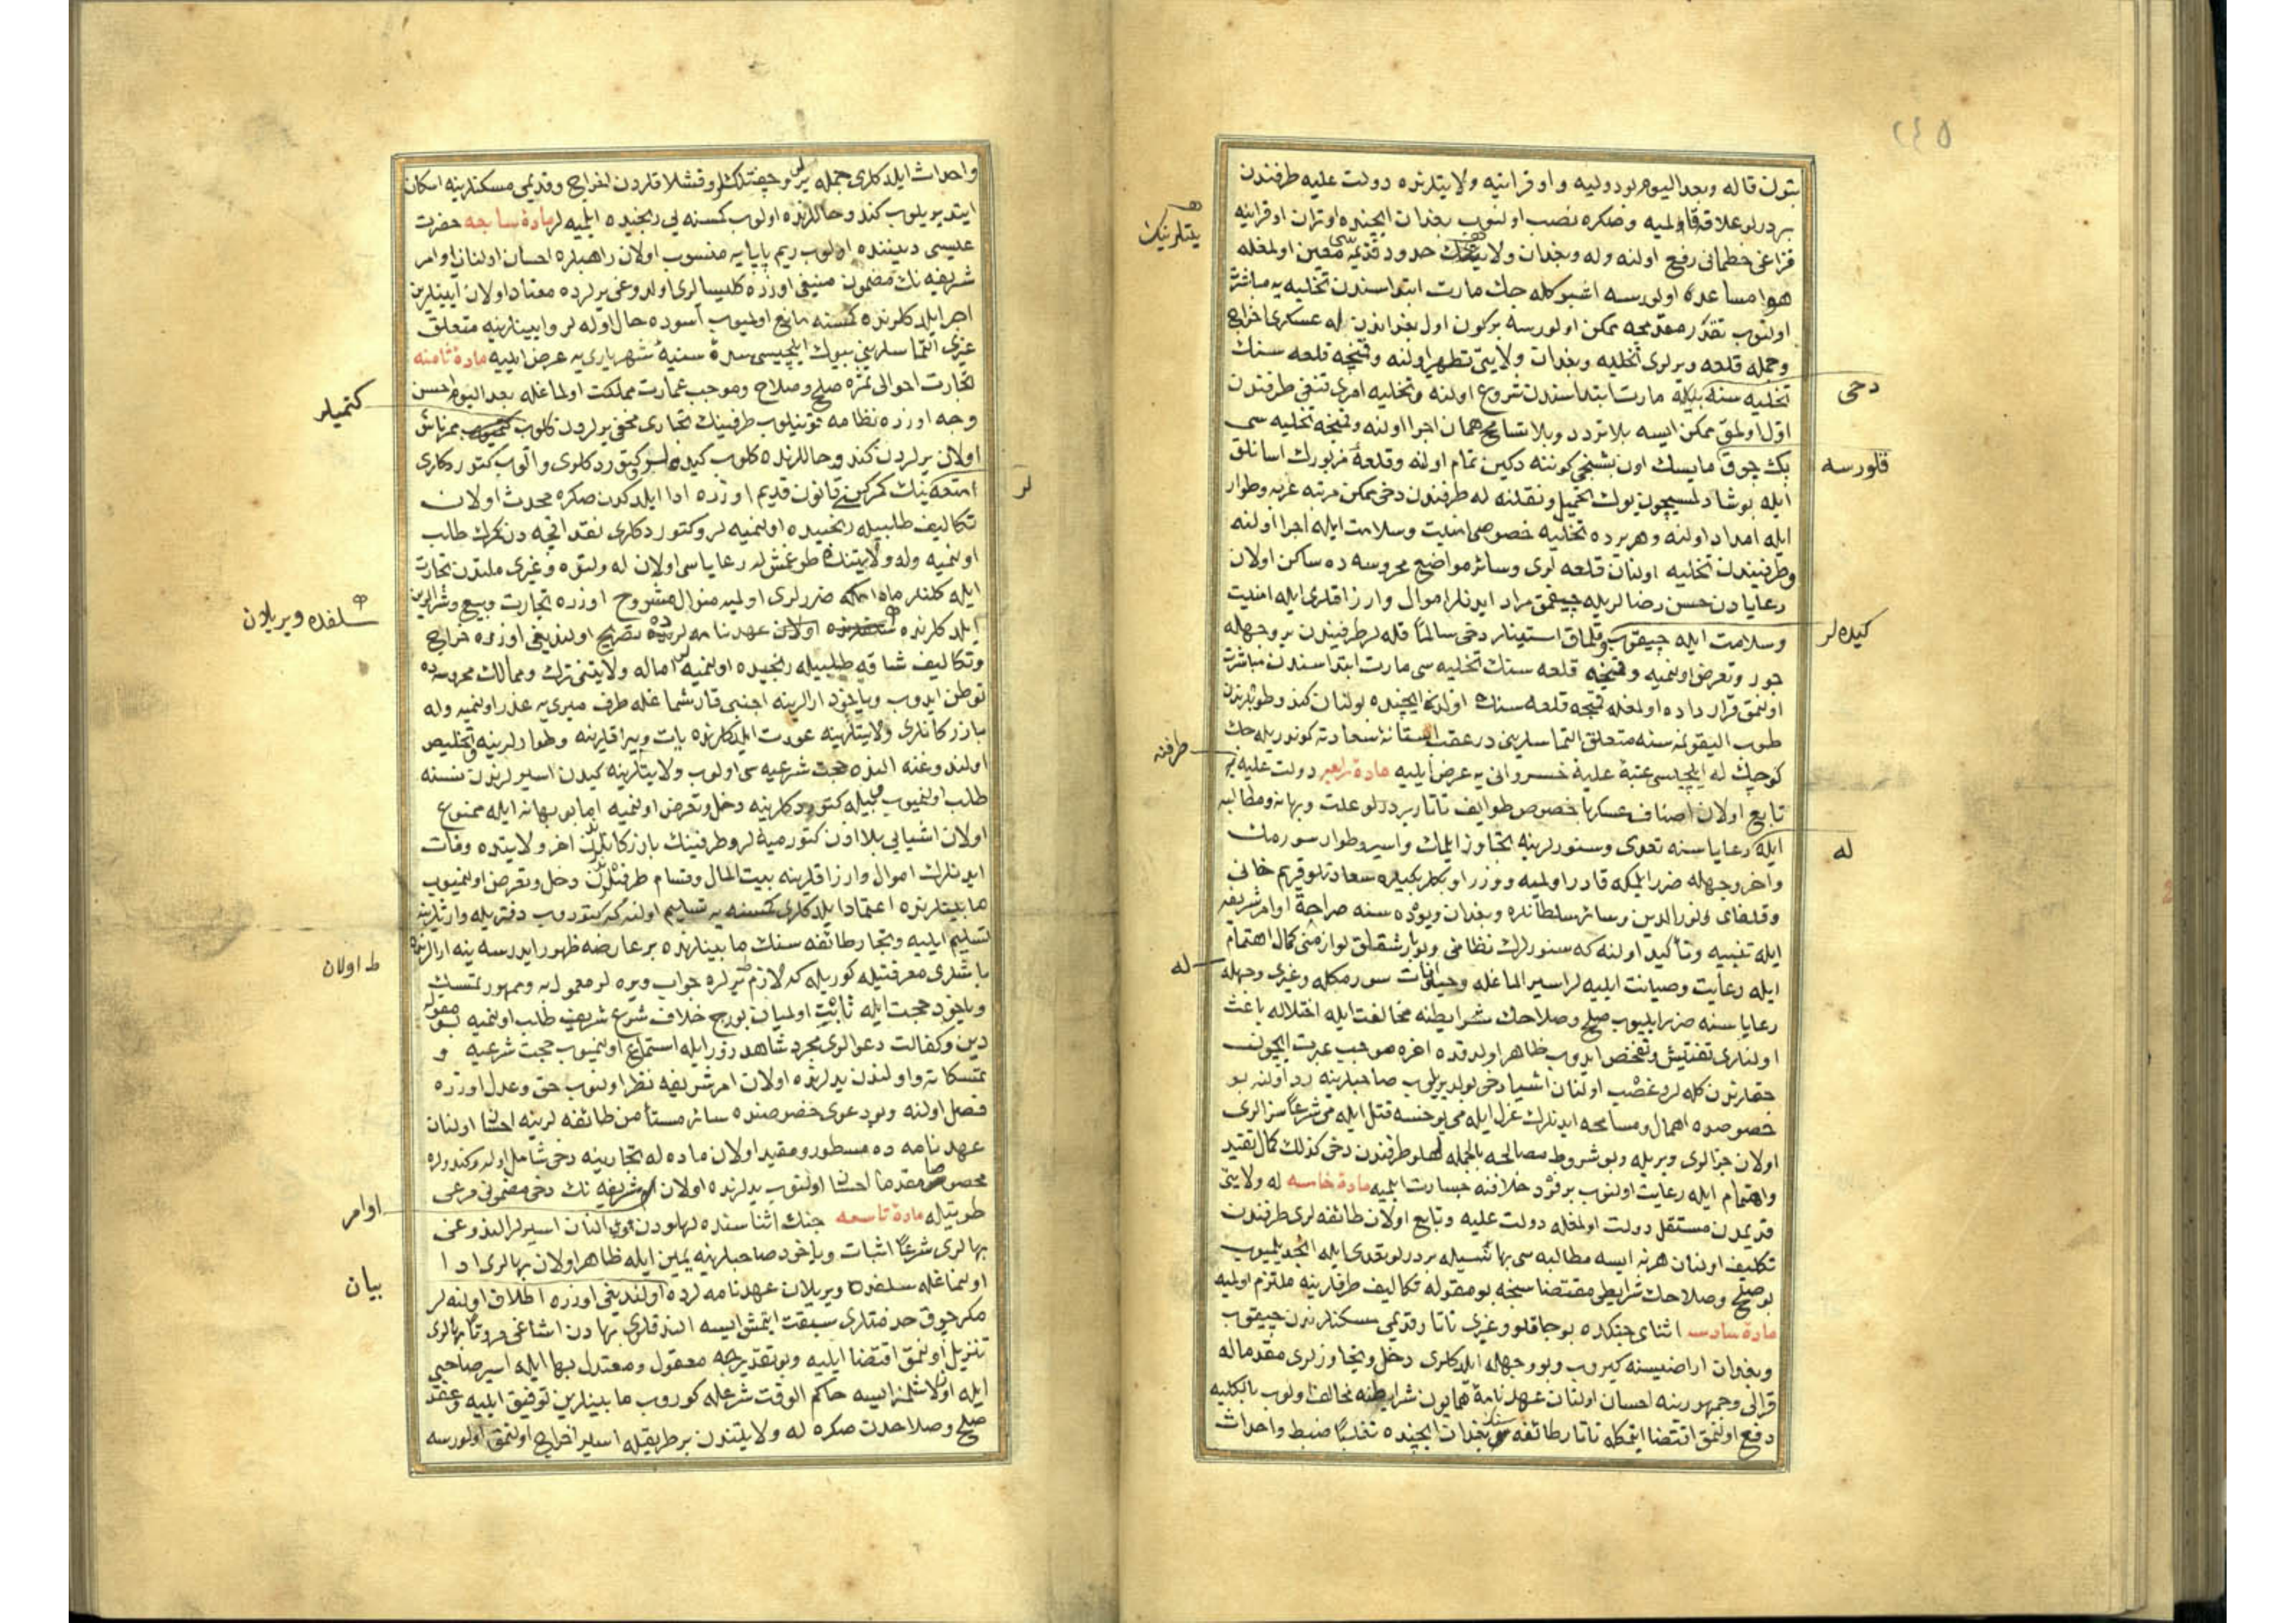 ٢٤٥
بتون قاله وبعد اليوم لودوليه و اوقراينه ولايتلرنده دولت عليه طرفندن
بر درلو علاقه قالميه وصكره نصب اولنوب بغدان ايچنده اوتران اوقراينه
يتلرينك
قزاغى خطمانى رفع اولنه وله وبغدان ولايتلرينك حدود قديمه سى معين اولمغله
هوا مساعده اولورسه اشبو كله جك مارت ابتداسندن تخليه يه مباشرت
اولنوب نقدر مقدمجه ممكن اولورسه بر كون اول بغداندن له عسكرى اخراج
وجمله قلعه ويرلرى تخليه وبغدان ولايتى تطهير اولنه وقمنيچه قلعه سنك
دخى
تخليه سنه مارت ابتداسندن شروع اولنه وتخليه امرى قنغى طرفندن
اول اولمق ممكن ايسه بلا تردد وبلا تسامح همان اجرا اولنه وقمنيچه تخليه سى
قلورسه
پك چوق مايسك اون بشنجى كوننه دكين تمام اولنه وقلعهٔ مزبورك اسانلق
ايله بوشادلمسيچون يوك تحميل ونقلنه له طرفندن دخى ممكن مرتبه عربه وطوار
ايله امداد اولنه وهر يرده تخليه خصوصى امنيت وسلامت ايله اجرا اولنه
وطرفيندن تخليه اولنان قلعه لرى وسائر مواضع محروسه ده ساكن اولان
رعايادن حسن رضالريله چيقمق مراد ايدنلر اموال وارزاقلرى ايله امنيت
كيده لر
وسلامت ايله چيقوب وقلمق استينلر دخى سالماً قله لر طرفيندن بر وجهله
جور وتعرض اولنميه وقمنيچه قلعه سنك تخليه سى مارت ابتداسندن مباشرت
اولنمق قرار داده اولمغله قمنيچه قلعه سنك ايچنده بولنان كندو طوپلرندن
طوپ اليقونمه سنه متعلق التماسلرينى در عقب استانهٔ سعادته كوندريله جك
طرفنه
كوچك له ايلچيسى عتبهٔ عليهٔ خسروانى يه عرض ايليه مادهٔ رابعه دولت عليه يه
تابع اولان اصناف عسكر با خصوص طوايف تاتار بر درلو علت وبهانه ومطالبه
له
ايله رعاياسنه تعدى وسنورلرينه تجاوز ايلمك واسير وطوار سورمك
واخر وجهله ضرر ايلمكه قادر اولميه ووزرا وبكلربكيلره سعادتلو قريم خانى
وقلغاى ونورالدين وسائر سلطانلره وبغدان ويوده سنه صراحةً اوامر شريفه
ايله تنبيه وتأكيد اولنه كه سنورلرك نظامى وبو بارشقلق لوازمنى كمال اهتمام
له
ايله رعايت وصيانت ايليه لر اسير الماغله وحيوانات سورمكله وغيرى وجهله
رعاياسنه ضرر ايليوب صلح وصلاحك شرايطنه مخالفت ايله اختلاله باعث
اولنلرى تفتيش وتفحص ايدوب ظاهر اولدقده اغره موجب عبرت ايچون
حقلرندن كله لر وغصب اولنان اشيا دخى بولديريلوب صاحبلرينه رد اولنه بو
خصوصده اهمال ومسامحه ايدنلرك عزل ايله مى يوخسه قتل ايله مى شرعاً سزالرى
اولان جزالرى ويريله وبو شروط مصالحه بالجمله لهلو طرفندن دخى كذلك كمال تقيد
واهتمام ايله رعايت اولنوب بر فرد خلافنه جسارت ايلميه مادهٔ خامسه له ولايتى
قديمدن مستقل دولت اولمغله دولت عليه وتابع اولان طائفه لرى طرفندن
تكليف اولنان هر نه ايسه مطالبه سى بهانه سيله بر درلو تعدى ايله انجيدلميوب
بو صلح وصلاحك شرايطى مقتضاسنجه بو مقوله تكاليف طرفلرينه ملتزم اولميه
مادهٔ سادسه اثناى جنكده بوجاقلو وغيرى تاتار قديمى مسكنلرندن چيقوب
وبغدان اراضيسنه كيروب وبو وجهله ايلدكلرى دخل وتجاوزلرى مقدما له
قرالى وجمهورينه احسان اولنان عهدنامهٔ همايون شرايطنه مخالف اولوب بالكليه
دفع اولنمق اقتضا ايتمكله تاتار طائفه سنك بغدان ايچنده تغلباً ضبط واحداث
واحداث ايلدكلرى جمله ير وچفتلك وقشلاقلردن اخراج وقديمى مسكنلرينه اسكان
ايتديريلوب كندو حاللرنده اولوب كمسنه يى رنجيده ايلميه لر مادهٔ سابعه حضرت
عيسى ديننده اولوب ريم پاپايه منسوب اولان راهبلره احسان اولنان اوامر
شريفه نك مضمون منيفى اوزره كليسالرى اولدوغى يرلرده معتاد اولان آيينلرين
اجرا ايلدكلرنده كمسنه مانع اولميوب آسوده حال اوله لر وآيينلرينه متعلق
غيرى التماسلرينى بيوك ايلچيسى سدهٔ سنيهٔ شهريارى يه عرض ايليه مادهٔ ثامنه
تجارت احوالى ثمرهٔ صلح وصلاح وموجب عمارت مملكت اولماغله بعد اليوم احسن
كتميلر
وجه اوزره نظامه قونيلوب طرفينك تجارى مخفى يرلردن كلوب ممرناس
اولان يرلردن كندو حاللرنده كلوب كيده لر كتوردكلرى والوب كتوردكلرى
لر
امتعه نك كمركين قانون قديم اوزره ادا ايلدكدن صكره محدث اولان
تكاليف طلبيله رنجيده اولنميه لر وكتوردكلرى نقد اقچه دن كمرك طلب
اولنميه وله ولايتنده طوغمش له رعاياسى اولان له ولتوه وغيرى ملتدن تجارت
ايله كلنلر مادامكه ضررلرى اولميه منوال مشروح اوزره تجارت وبيع وشرالرين
سلفده ويريلان
ايلدكلرنده اولان عهدنامه لرده تصريح اولنديغى اوزره خراج
وتكاليف شاقه طلبيله رنجيده اولنميه لر اما له ولايتنى ترك وممالك محروسه ده
توطن ايدوب وياخود ارالرينه اجنبى قارشماغله طرف ميرى يه غدر اولنميه وله
بازركانلرى ولايتلرينه عودت ايلدكلرنده يات ويراقلرينه وطوارلرينه وتخليص
اولندوغنه النده حجت شرعيه سى اولوب ولايتلرينه كيدن اسيرلرندن نسنه
طلب اولنميوب كتوردكلرينه دخل وتعرض اولنميه اما بو بهانه ايله ممنوع
اولان اشيايى بلا اذن كتورميه لر وطرفينك بازركانلرندن اخر ولايتده وفات
ايدنلرك اموال وارزاقلرينه بيت المال وقسام طرفلرندن دخل وتعرض اولنميوب
مابينلرنده اعتماد ايلدكلرى كمسنه يه تسليم اولنه كه كتوروب دفتريله وارثلرينه
تسليم ايليه وتجار طائفه سنك مابينلرنده بر عارضه ظهور ايدرسه ينه ارالرنده
ط اولان
باشلرى معرفتيله كوريله كه لازم يرلره جواب ويره لر معمول به وممهور تمسك
وياخود حجت ايله ثابت اولميان بورج خلاف شرع شريف طلب اولنميه بو مقوله
دين وكفالت دعوالرى مجرد شاهد زور ايله استماع اولنميوب حجت شرعيه و
تمسكاته واولندن يدلرنده اولان امر شريفه نظر اولنوب حق وعدل اوزره
فصل اولنه وبو دعوى خصوصنده سائر مستأمن طائفه لرينه احسان اولنان
عهدنامه ده مسطور ومقيد اولان ماده له تجارينه دخى شامل اوله وكندولره
مخصوص مقدما احسان اولنوب يدلرنده اولان شريفه نك دخى مضمونى مرعى
اوامر
طوتيله مادهٔ تاسعه جنك اثناسنده لهلودن النان اسيرلر الندوغى
بهالرى شرعاً اثبات وياخود صاحبلرينه يمين ايله ظاهر اولان بهالرى ادا
بيان
اولنماغله سلفده ويريلان عهدنامه لرده اولنديغى اوزره اطلاق اولنه لر
مكر چوق خدمتلرى سبقت ايتمش ايسه الندقلرى بهادن اشاغى مروتا بهالرى
تنزيل اولنمق اقتضا ايليه وبو تقديرجه معقول ومعتدل بها ايله اسير صاحبى
ايله اوكلاشلمز ايسه حاكم الوقت شرعله كوروب مابينلرين توفيق ايليه وعقد
صلح وصلاحدن صكره له ولايتندن بر طريقله اسير اخراج اولنمق اولورسه